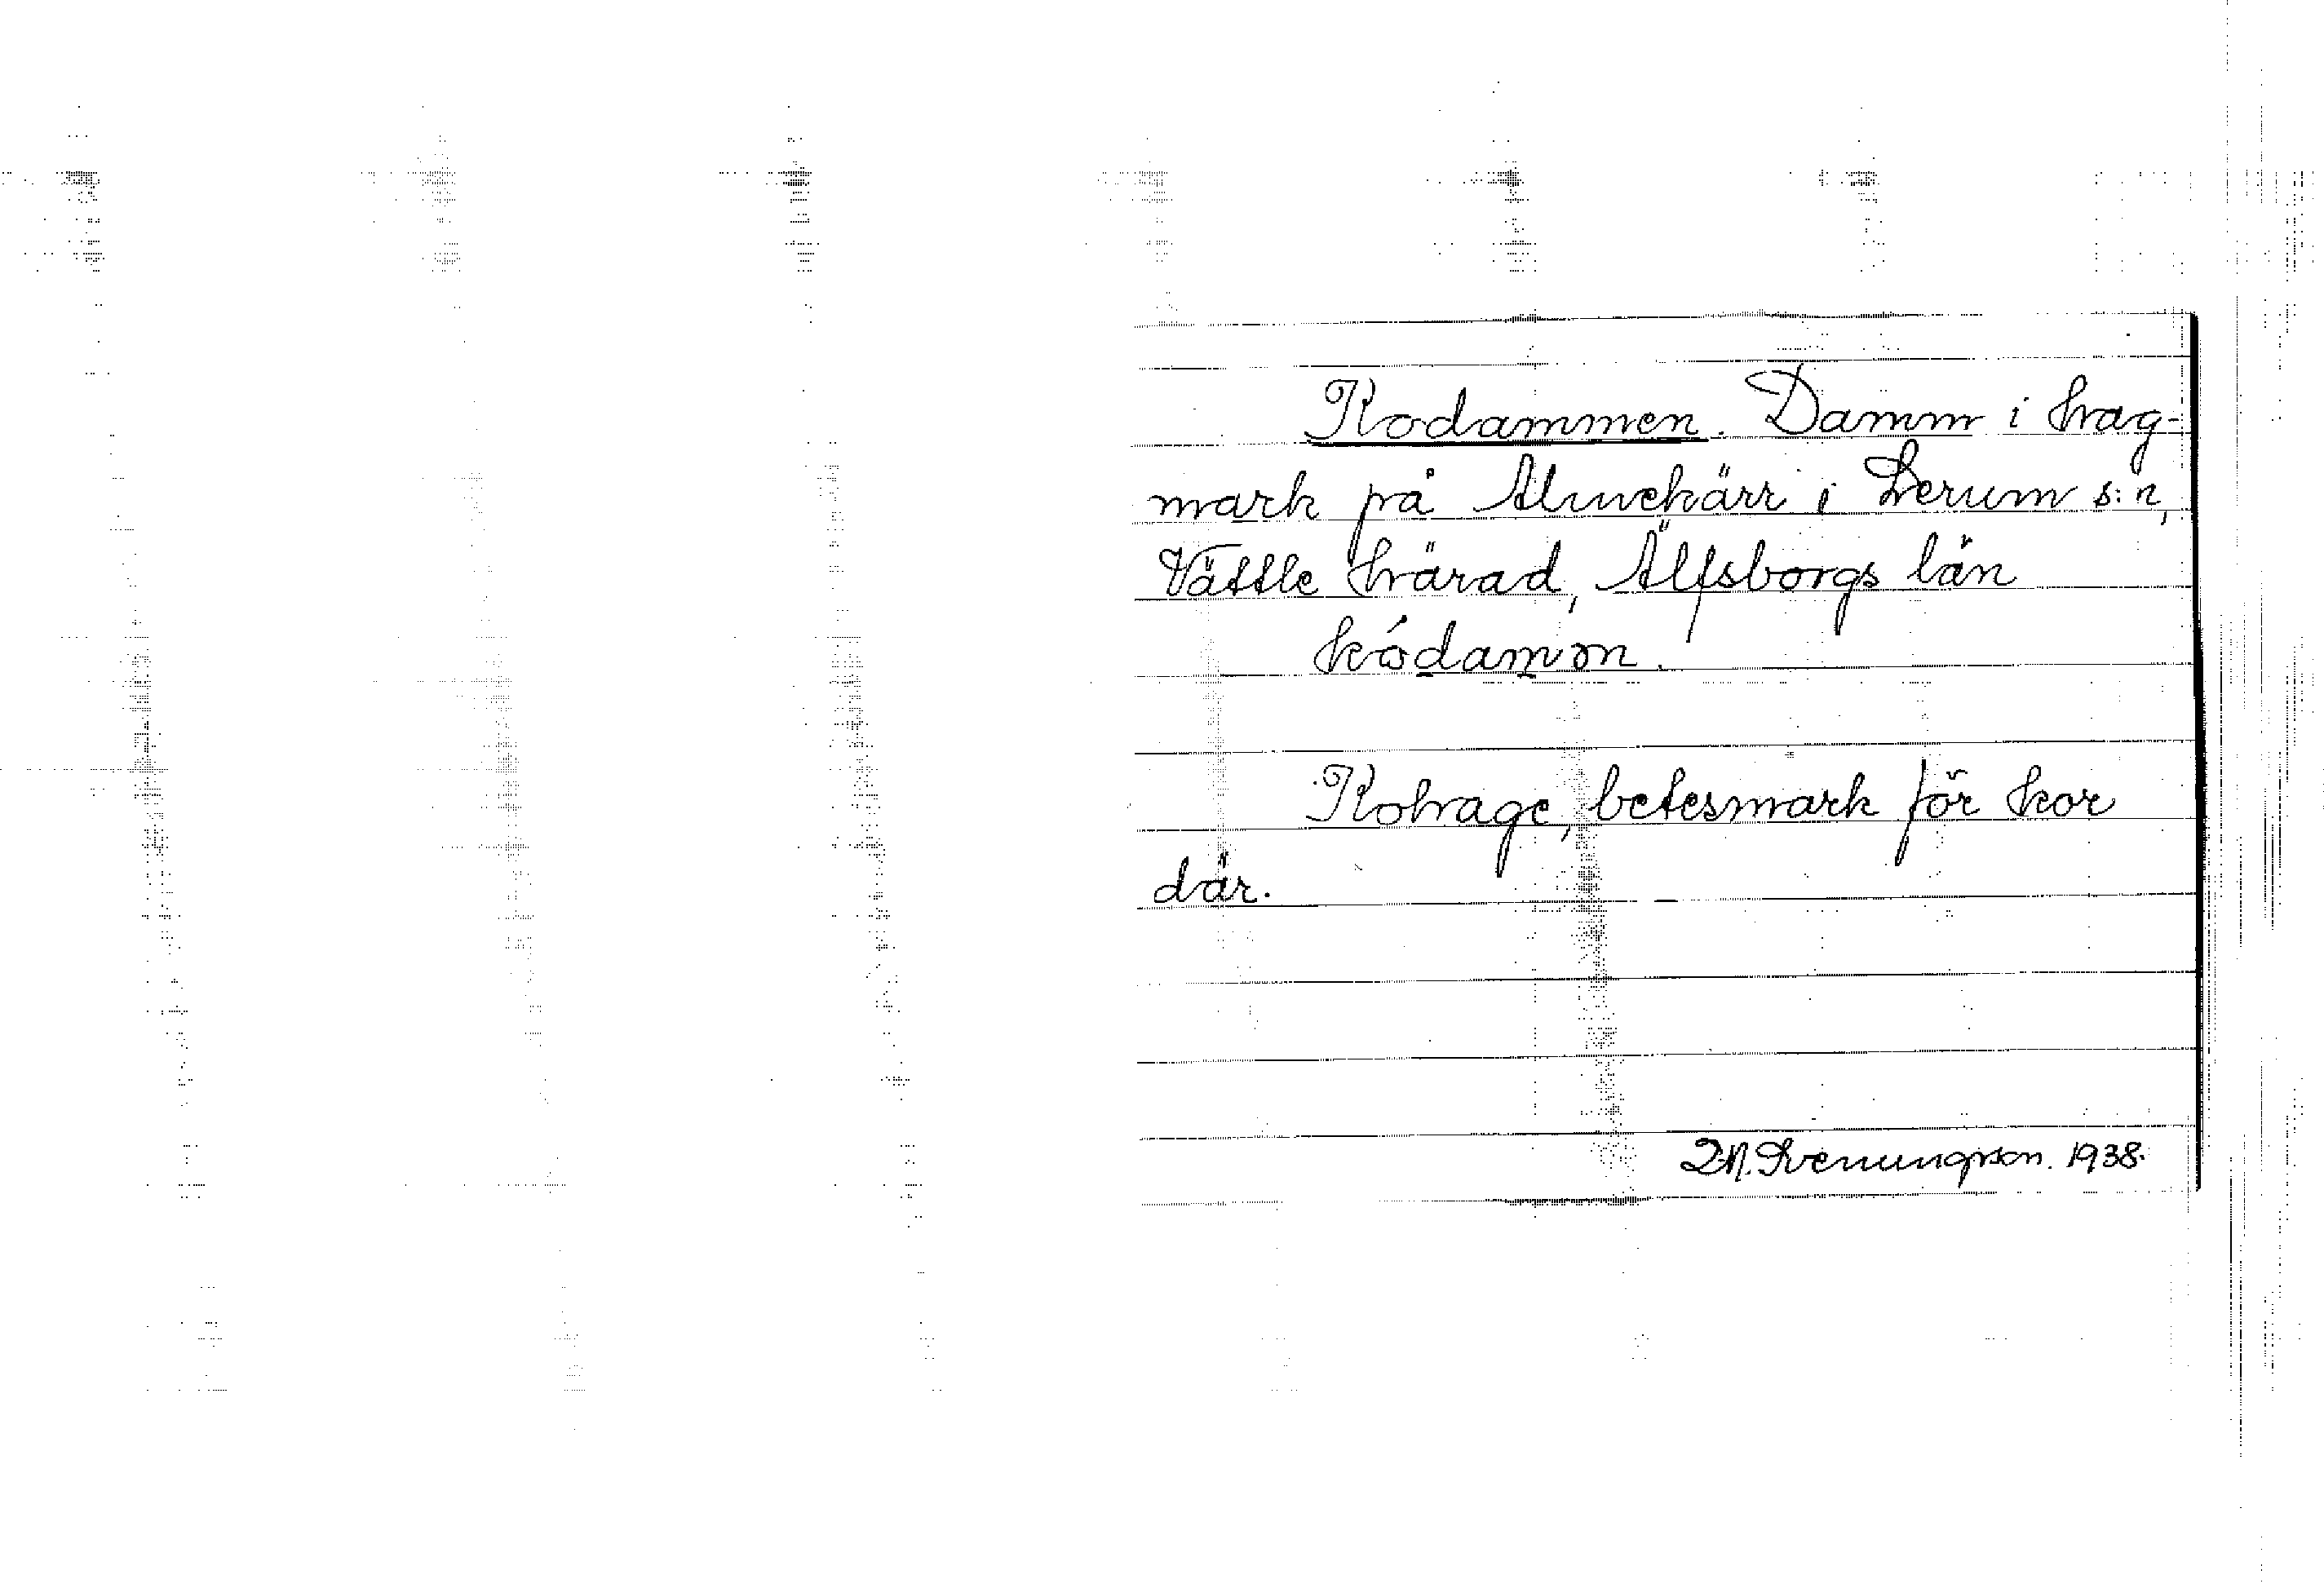 Kodammen. Damm i hag-
mark på Almekärr i Lerum s:n,
Vättle härad, Älfsborgs län
kódamɷn.
Kohage, betesmark för kor
där.
D.N. Svenungsson. 1938.